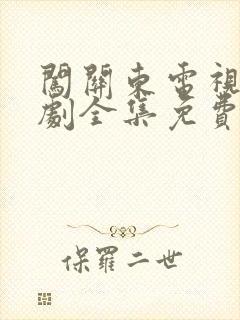 闖關東電視
劇全集免費
保羅二世